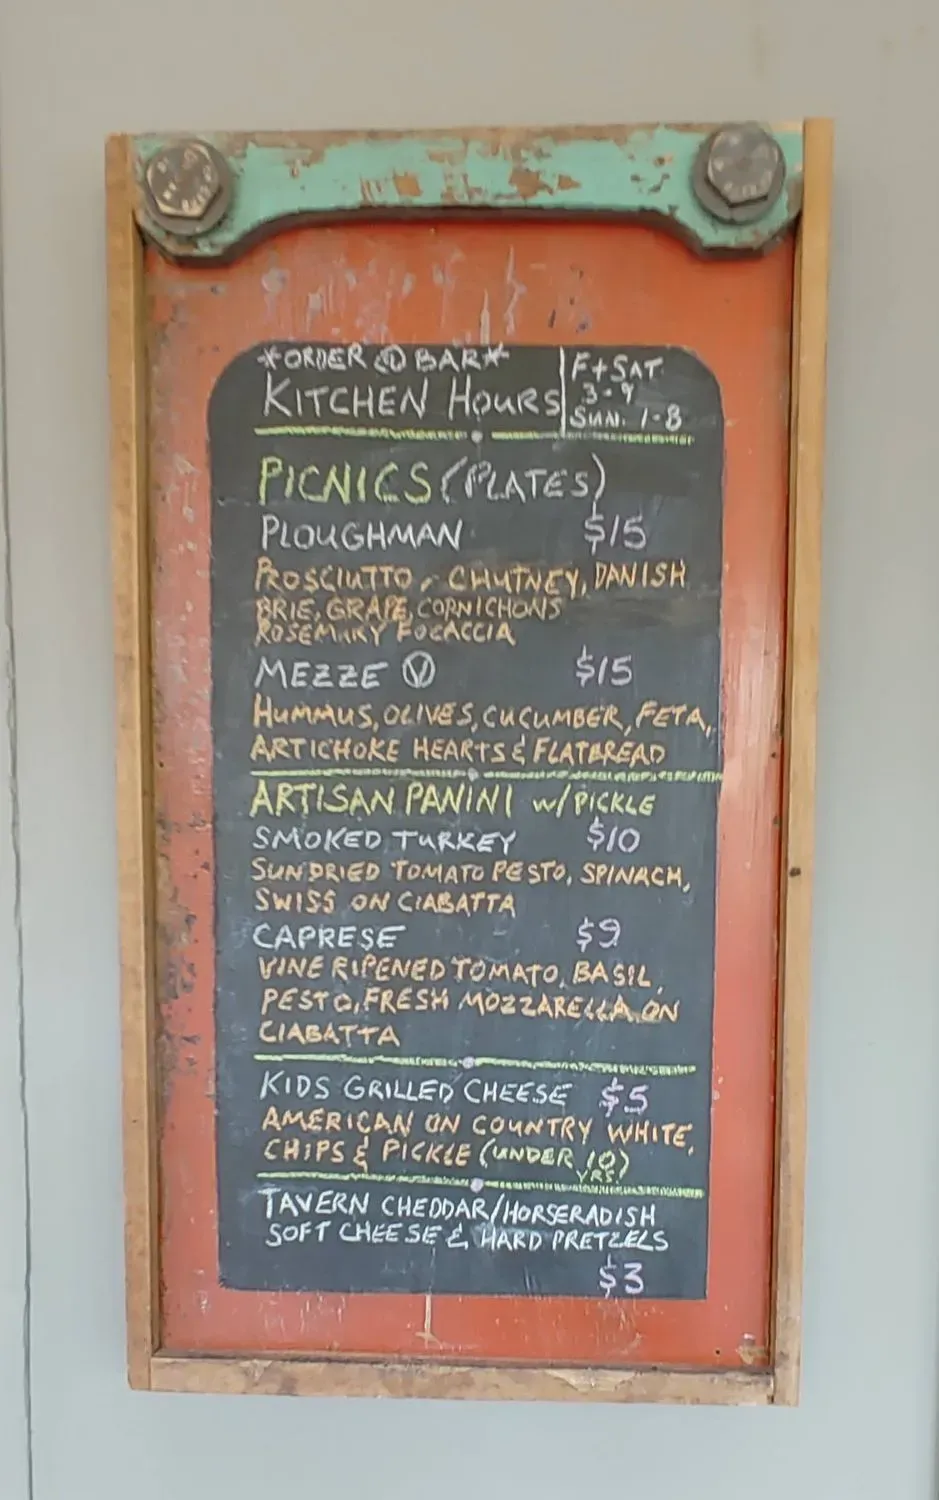 *ORDER @ BAR*
KITCHEN HOURS
F+SAT
3-9
SUN. 1-8
PICNICS (PLATES)
PLOUGHMAN $15
PROSCIUTTO, CHUTNEY, DANISH
BRIE, GRAPE, CORNICHONS
ROSEMARY FOCACCIA
MEZZE Ⓥ $15
HUMMUS, OLIVES, CUCUMBER, FETA,
ARTICHOKE HEARTS & FLATBREAD
ARTISAN PANINI w/PICKLE
SMOKED TURKEY $10
SUNDRIED TOMATO PESTO, SPINACH,
SWISS ON CIABATTA
CAPRESE $9
VINE RIPENED TOMATO, BASIL,
PESTO, FRESH MOZZARELLA ON
CIABATTA
KIDS GRILLED CHEESE $5
AMERICAN ON COUNTRY WHITE,
CHIPS & PICKLE (UNDER 10)
YRS.
TAVERN CHEDDAR/HORSERADISH
SOFT CHEESE & HARD PRETZELS
$3